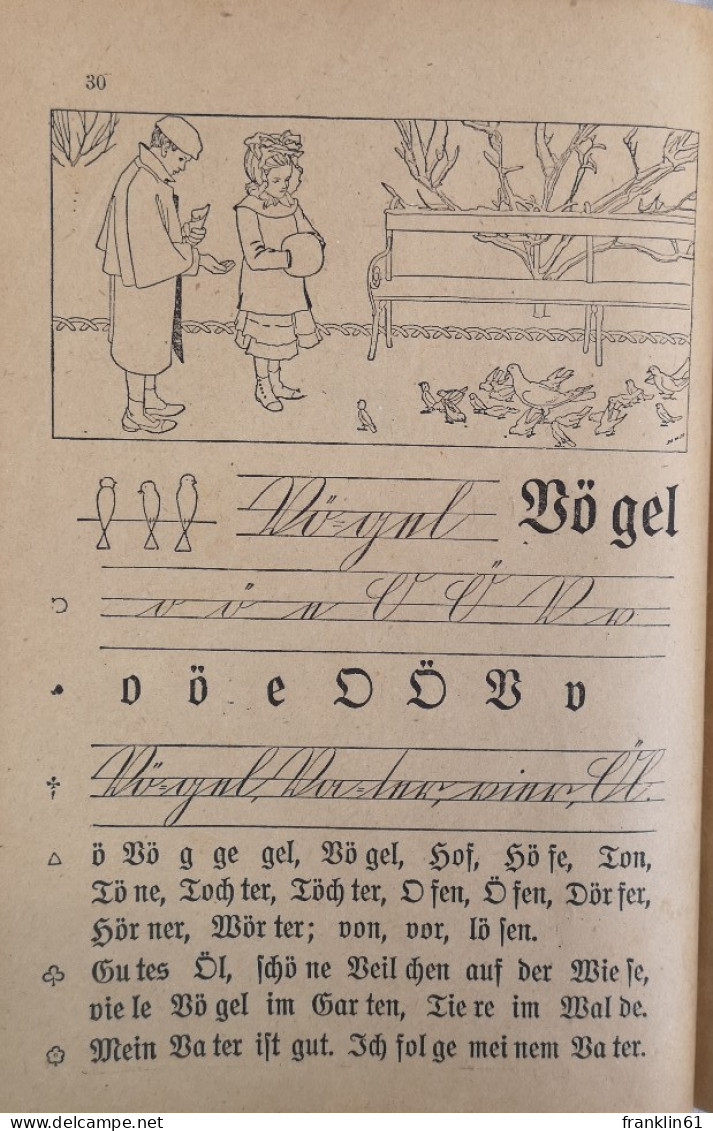 30
Vö-gel Vö gel
o ö e O Ö V v
o ö e O Ö V v
Vö-gel, Va-ter, vier, Öl.
ö Vö g ge gel, Vö gel, Hof, Hö fe, Ton,
Tö ne, Toch ter, Töch ter, O fen, Ö fen, Dör fer,
Hör ner, Wör ter; von, vor, lö ſen.
Gu tes Öl, ſchö ne Veil chen auf der Wie ſe,
vie le Vö gel im Gar ten, Tie re im Wal de.
Mein Va ter iſt gut. Ich fol ge mei nem Va ter.
franklin61